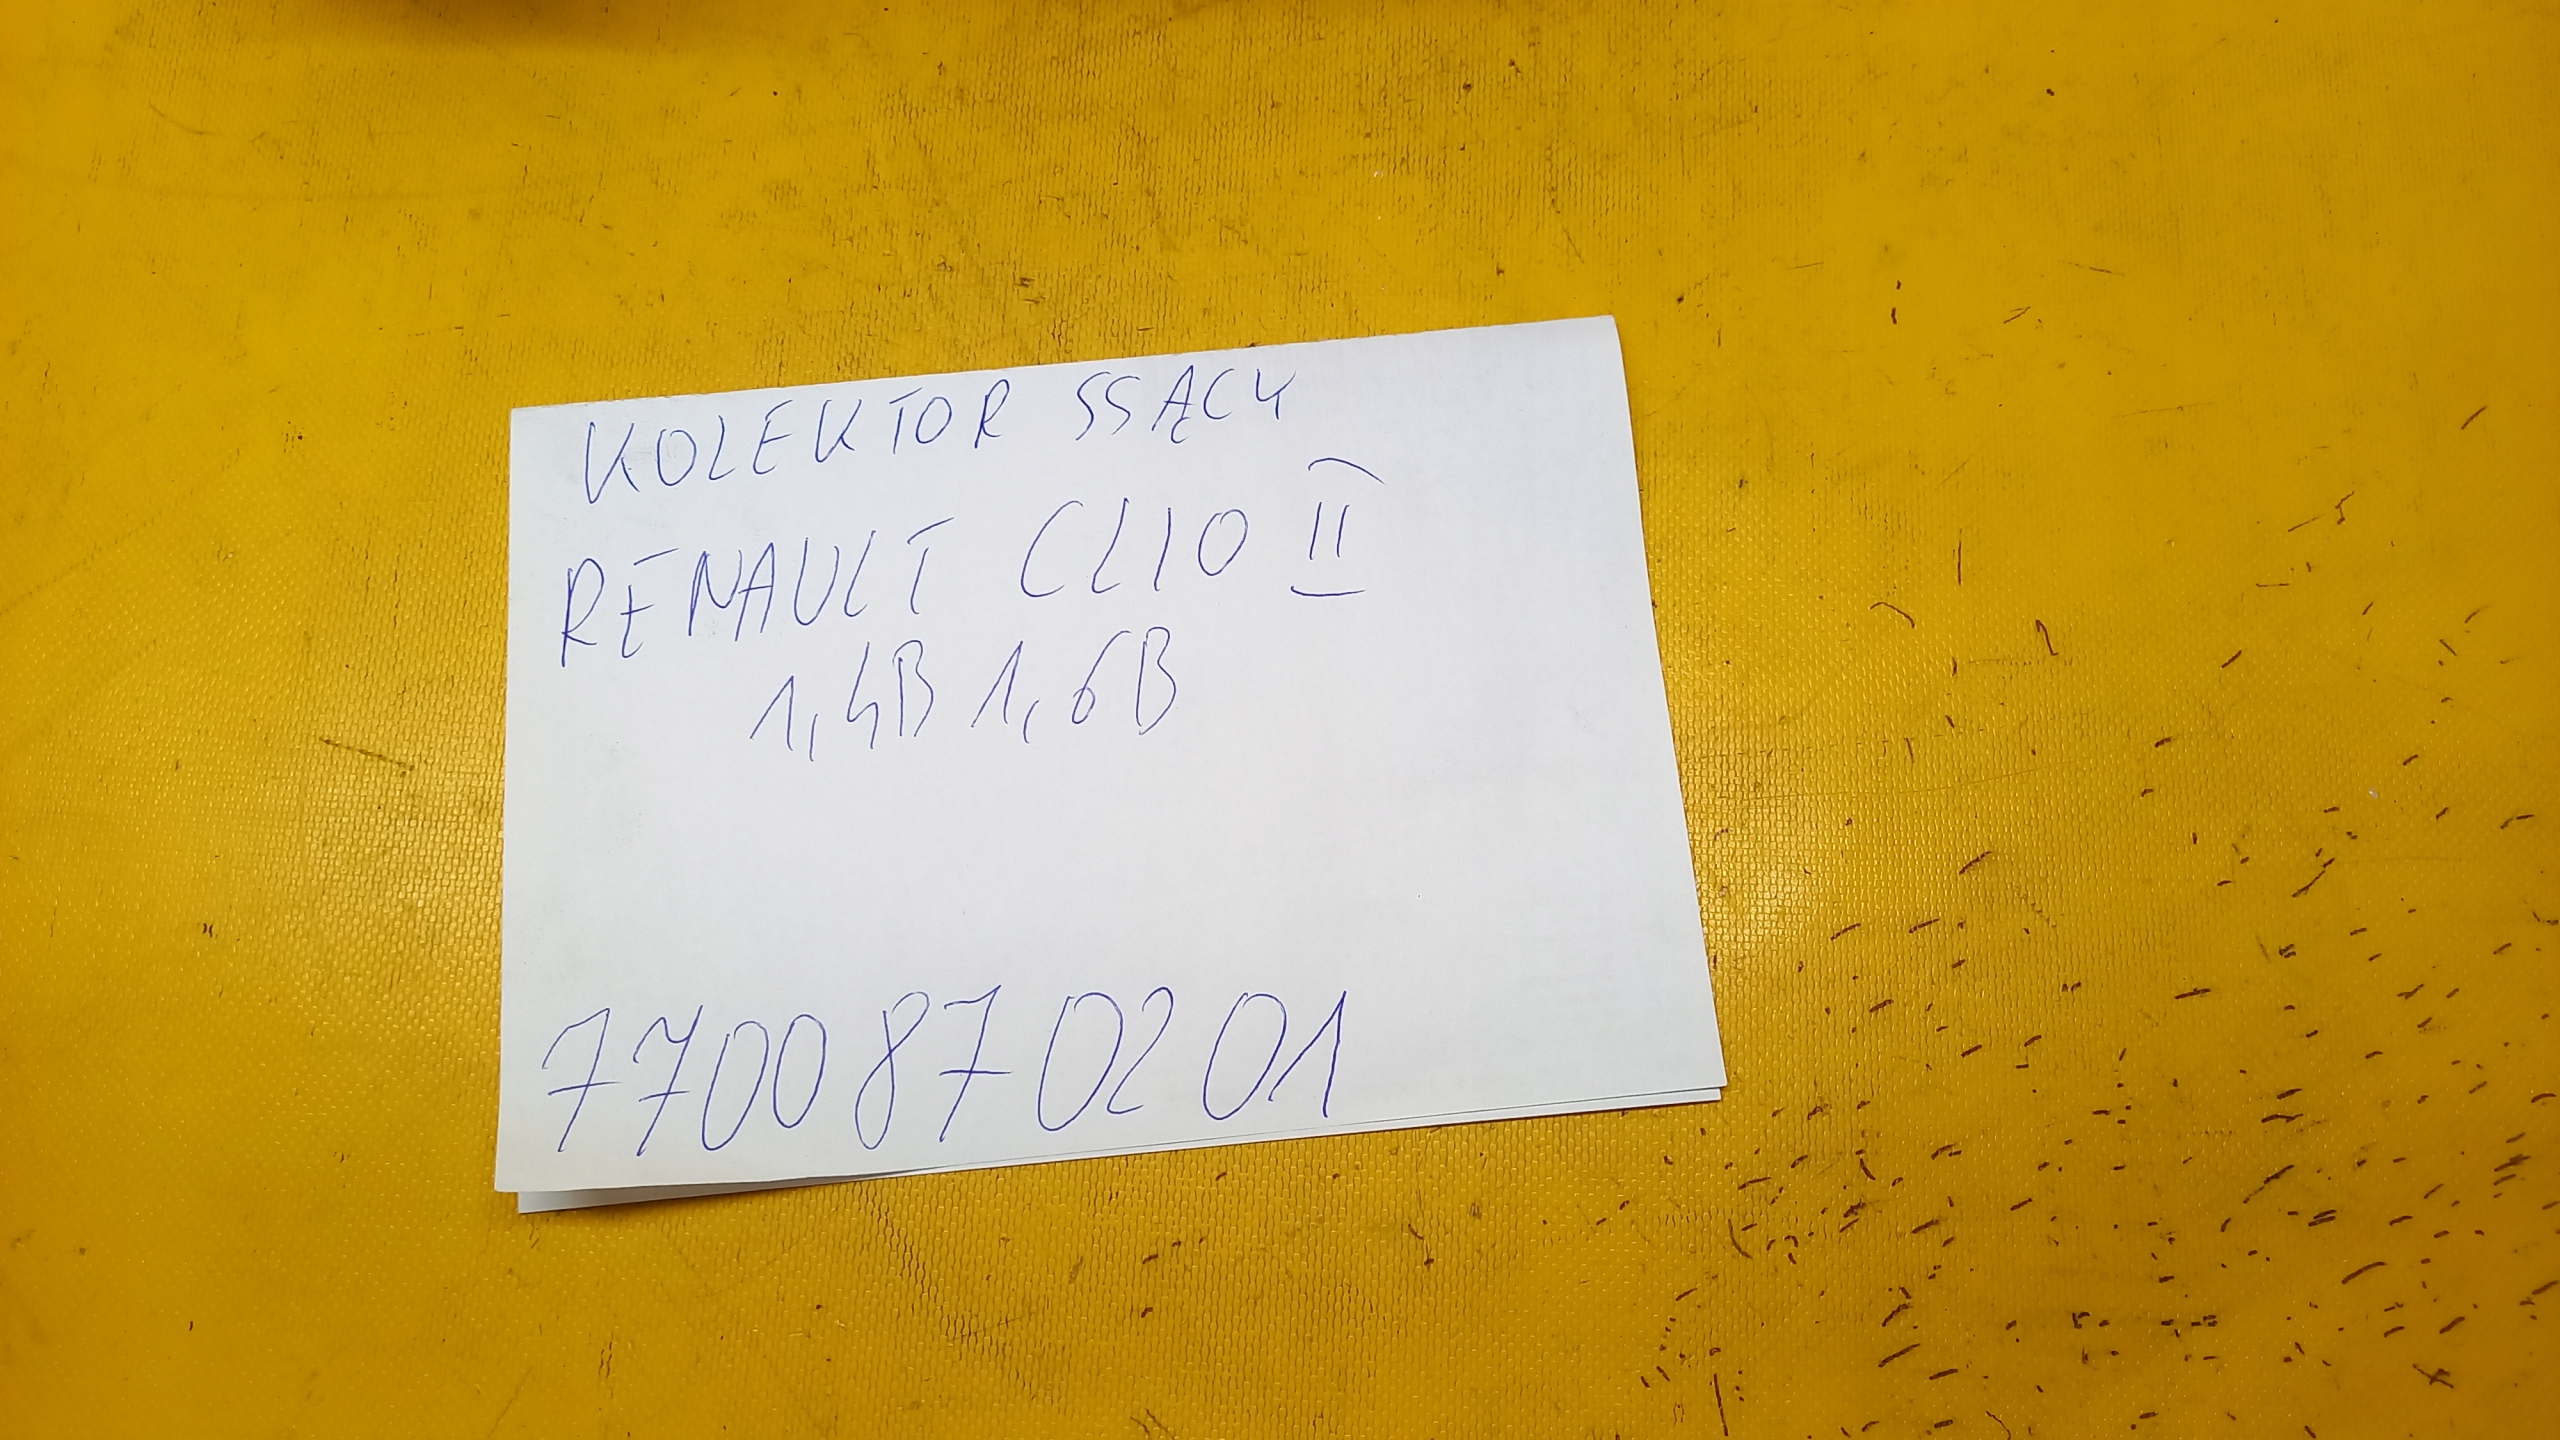 KOLEKTOR SSĄCY
RENAULT CLIO II
1,4B 1,6B
7700870201